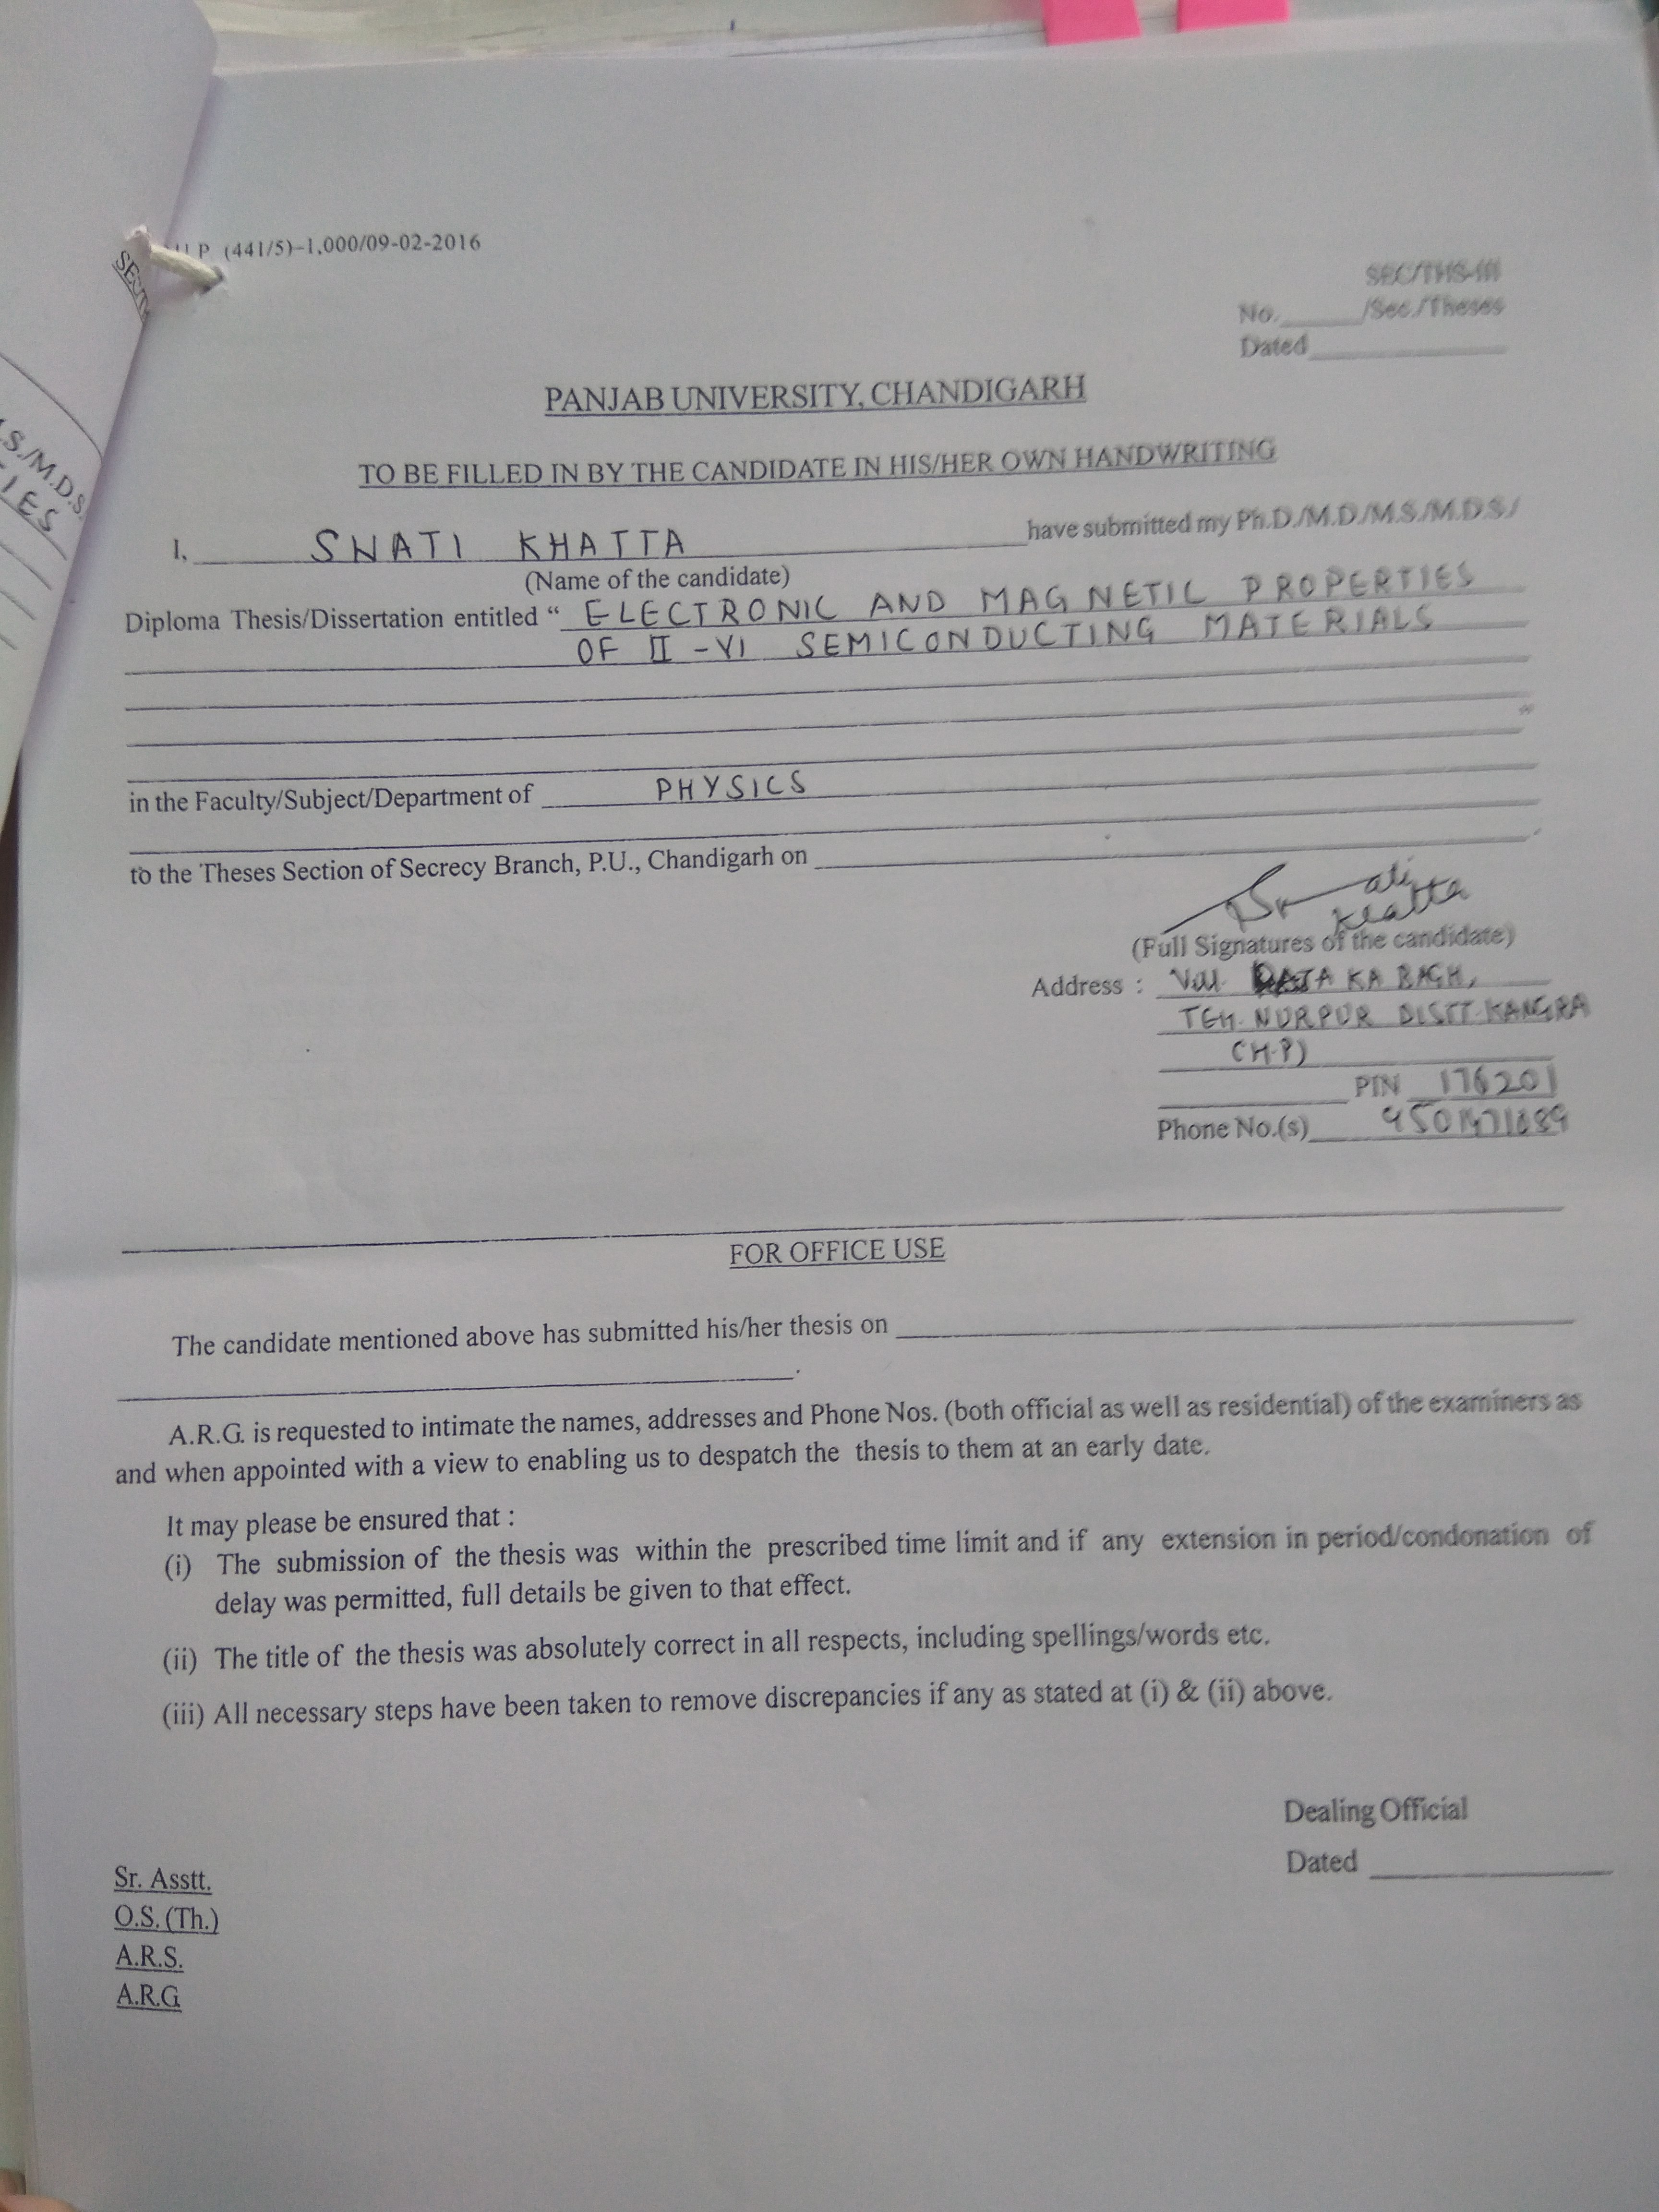 P (441/5)–1,000/09-02-2016
SEC/THS-III
No.______/Sec./Theses
Dated
PANJAB UNIVERSITY, CHANDIGARH
TO BE FILLED IN BY THE CANDIDATE IN HIS/HER OWN HANDWRITING
I, SWATI KHATTA have submitted my Ph.D./M.D./M.S./M.D.S./
(Name of the candidate)
Diploma Thesis/Dissertation entitled “ ELECTRONIC AND MAGNETIC PROPERTIES
OF II - VI SEMICONDUCTING MATERIALS
”
in the Faculty/Subject/Department of PHYSICS
to the Theses Section of Secrecy Branch, P.U., Chandigarh on
Swati
Khatta
(Full Signatures of the candidate)
Address : Vill. KA BAGH,
TEH. NURPUR DISTT. KANGRA
(H.P)
PIN 176201
Phone No.(s)
FOR OFFICE USE
The candidate mentioned above has submitted his/her thesis on
.
A.R.G. is requested to intimate the names, addresses and Phone Nos. (both official as well as residential) of the examiners as
and when appointed with a view to enabling us to despatch the thesis to them at an early date.
It may please be ensured that :
(i) The submission of the thesis was within the prescribed time limit and if any extension in period/condonation of
delay was permitted, full details be given to that effect.
(ii) The title of the thesis was absolutely correct in all respects, including spellings/words etc.
(iii) All necessary steps have been taken to remove discrepancies if any as stated at (i) & (ii) above.
Dealing Official
Dated
Sr. Asstt.
O.S. (Th.)
A.R.S.
A.R.G